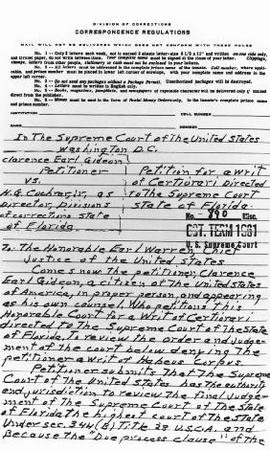 DIVISION OF CORRECTIONS
CORRESPONDENCE REGULATIONS
MAIL WILL NOT BE DELIVERED WHICH DOES NOT CONFORM WITH THESE RULES
No. 1 -- Only 2 letters each week, not to exceed 2 sheets letter-size 8 1/2 x 11" and written on one side only,
and if ruled paper, do not write between lines. Your complete name must be signed at the close of your letter. Clippings,
stamps, letters from other people, stationery or cash must not be enclosed in your letters.
No. 2 -- All letters must be addressed in the complete prison name of the inmate.
No. 3 -- Do not send any packages without a Package Permit. Unauthorized packages will be destroyed.
No. 4 -- Letters must be written in English only.
No. 5 -- Books, magazines, pamphlets, and newspapers of reputable character will be delivered only if mailed
direct from the publisher.
No. 6 -- Money must be sent in the form of Postal Money Orders only,
INSTITUTION
CELL NUMBER
NAME
NUMBER
In The Supreme Court of The United States
Washington D.C.
clarence Earl Gideon
Petitioner
Petition for a writ
vs.
of Certiorari Directed
as
to The Supreme Court
Director, Divisions
State of Florida.
of corrections state
of Florida
No. 890 Misc.
OCT. TERM 1961
U. S. Supreme Court
To: The Honorable Earl Warren, Chief
Justice of the United States
Comes now The petitioner, Clarence
Earl Gideon, a citizen of The United States
of America, in proper person, and appearing
as his own counsel. Who petitions this
Honorable Court for a Writ of Certiorari
directed to The Supreme Court of The State
of Florida, To review the order and Judge-
ment of the court below denying The
petitioner a writ of Habeus Corpus.
Petitioner submits That The Supreme
Court of The United States has The authority
and jurisdiction to review The final Judge-
ment of The Supreme Court of The State
of Florida the highest court of The State
Under sec. 344(B) Title 28 U.S.C.A. and
Because the "Due process clause" of the